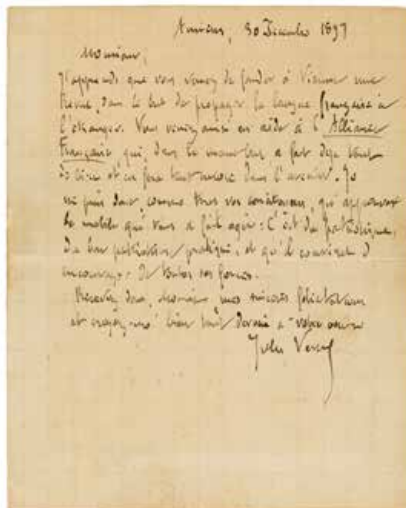 Amiens, 30 Décembre 1897
Monsieur,
J'apprends que vous venez de fonder à Vienne une
Revue, dans le but de propager la langue française à
l'étranger. Vous venez ainsi en aide à l'Alliance
Française qui, dans le même but, a fait déjà tant
de bien et en fera tant encore dans l'avenir. Je
ne puis donc comme tous vos qui approuver
le mobile qui vous a fait agir : c'est du patriotisme,
du bon patriotisme pratique, et qu'il convient d'
encourager de toutes ses forces.
Recevez donc, Monsieur, mes sincères félicitations
et croyez-moi bien tout dévoué à votre œuvre
Jules Verne